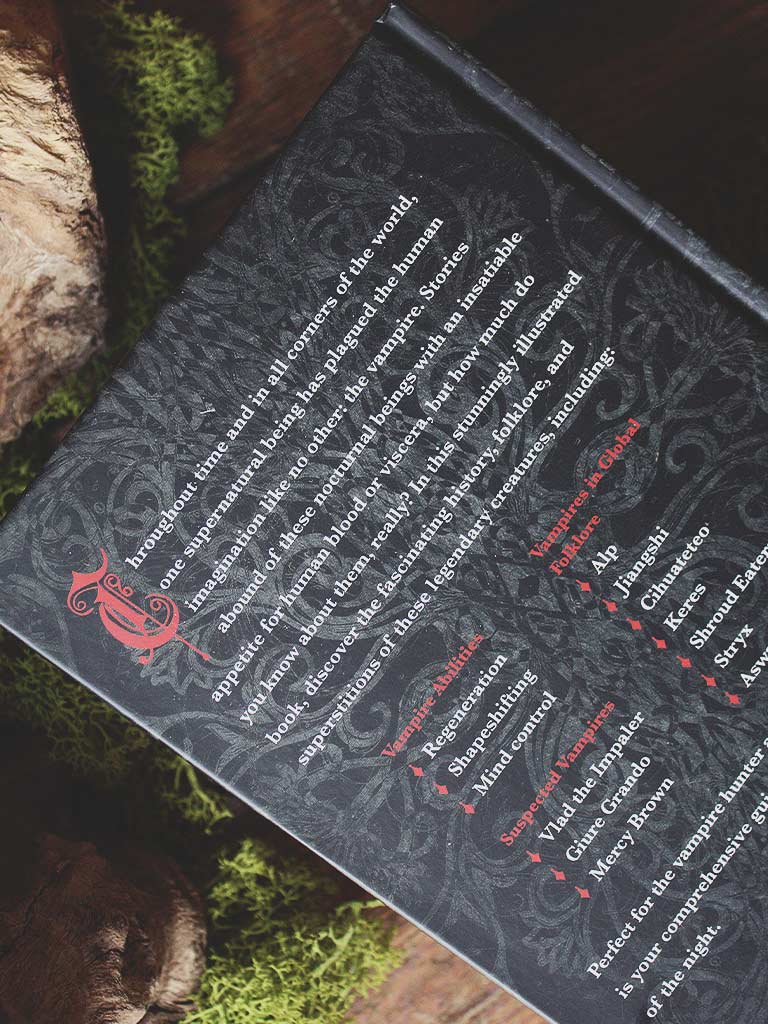 Throughout time and in all corners of the world,
one supernatural being has plagued the human
imagination like no other: the vampire. Stories
abound of these nocturnal beings with an insatiable
appetite for human blood or viscera, but how much do
you know about them, really? In this stunningly illustrated
book, discover the fascinating history, folklore, and
superstitions of these legendary creatures, including:
Vampire Abilities
Regeneration
Shapeshifting
Mind control
Suspected Vampires
Vlad the Impaler
Giure Grando
Mercy Brown
Vampires in Global
Folklore
Alp
Jiangshi
Cihuateteo
Keres
Shroud Eater
Stryx
Asw
Perfect for the vampire hunter
is your comprehensive gui
of the night.